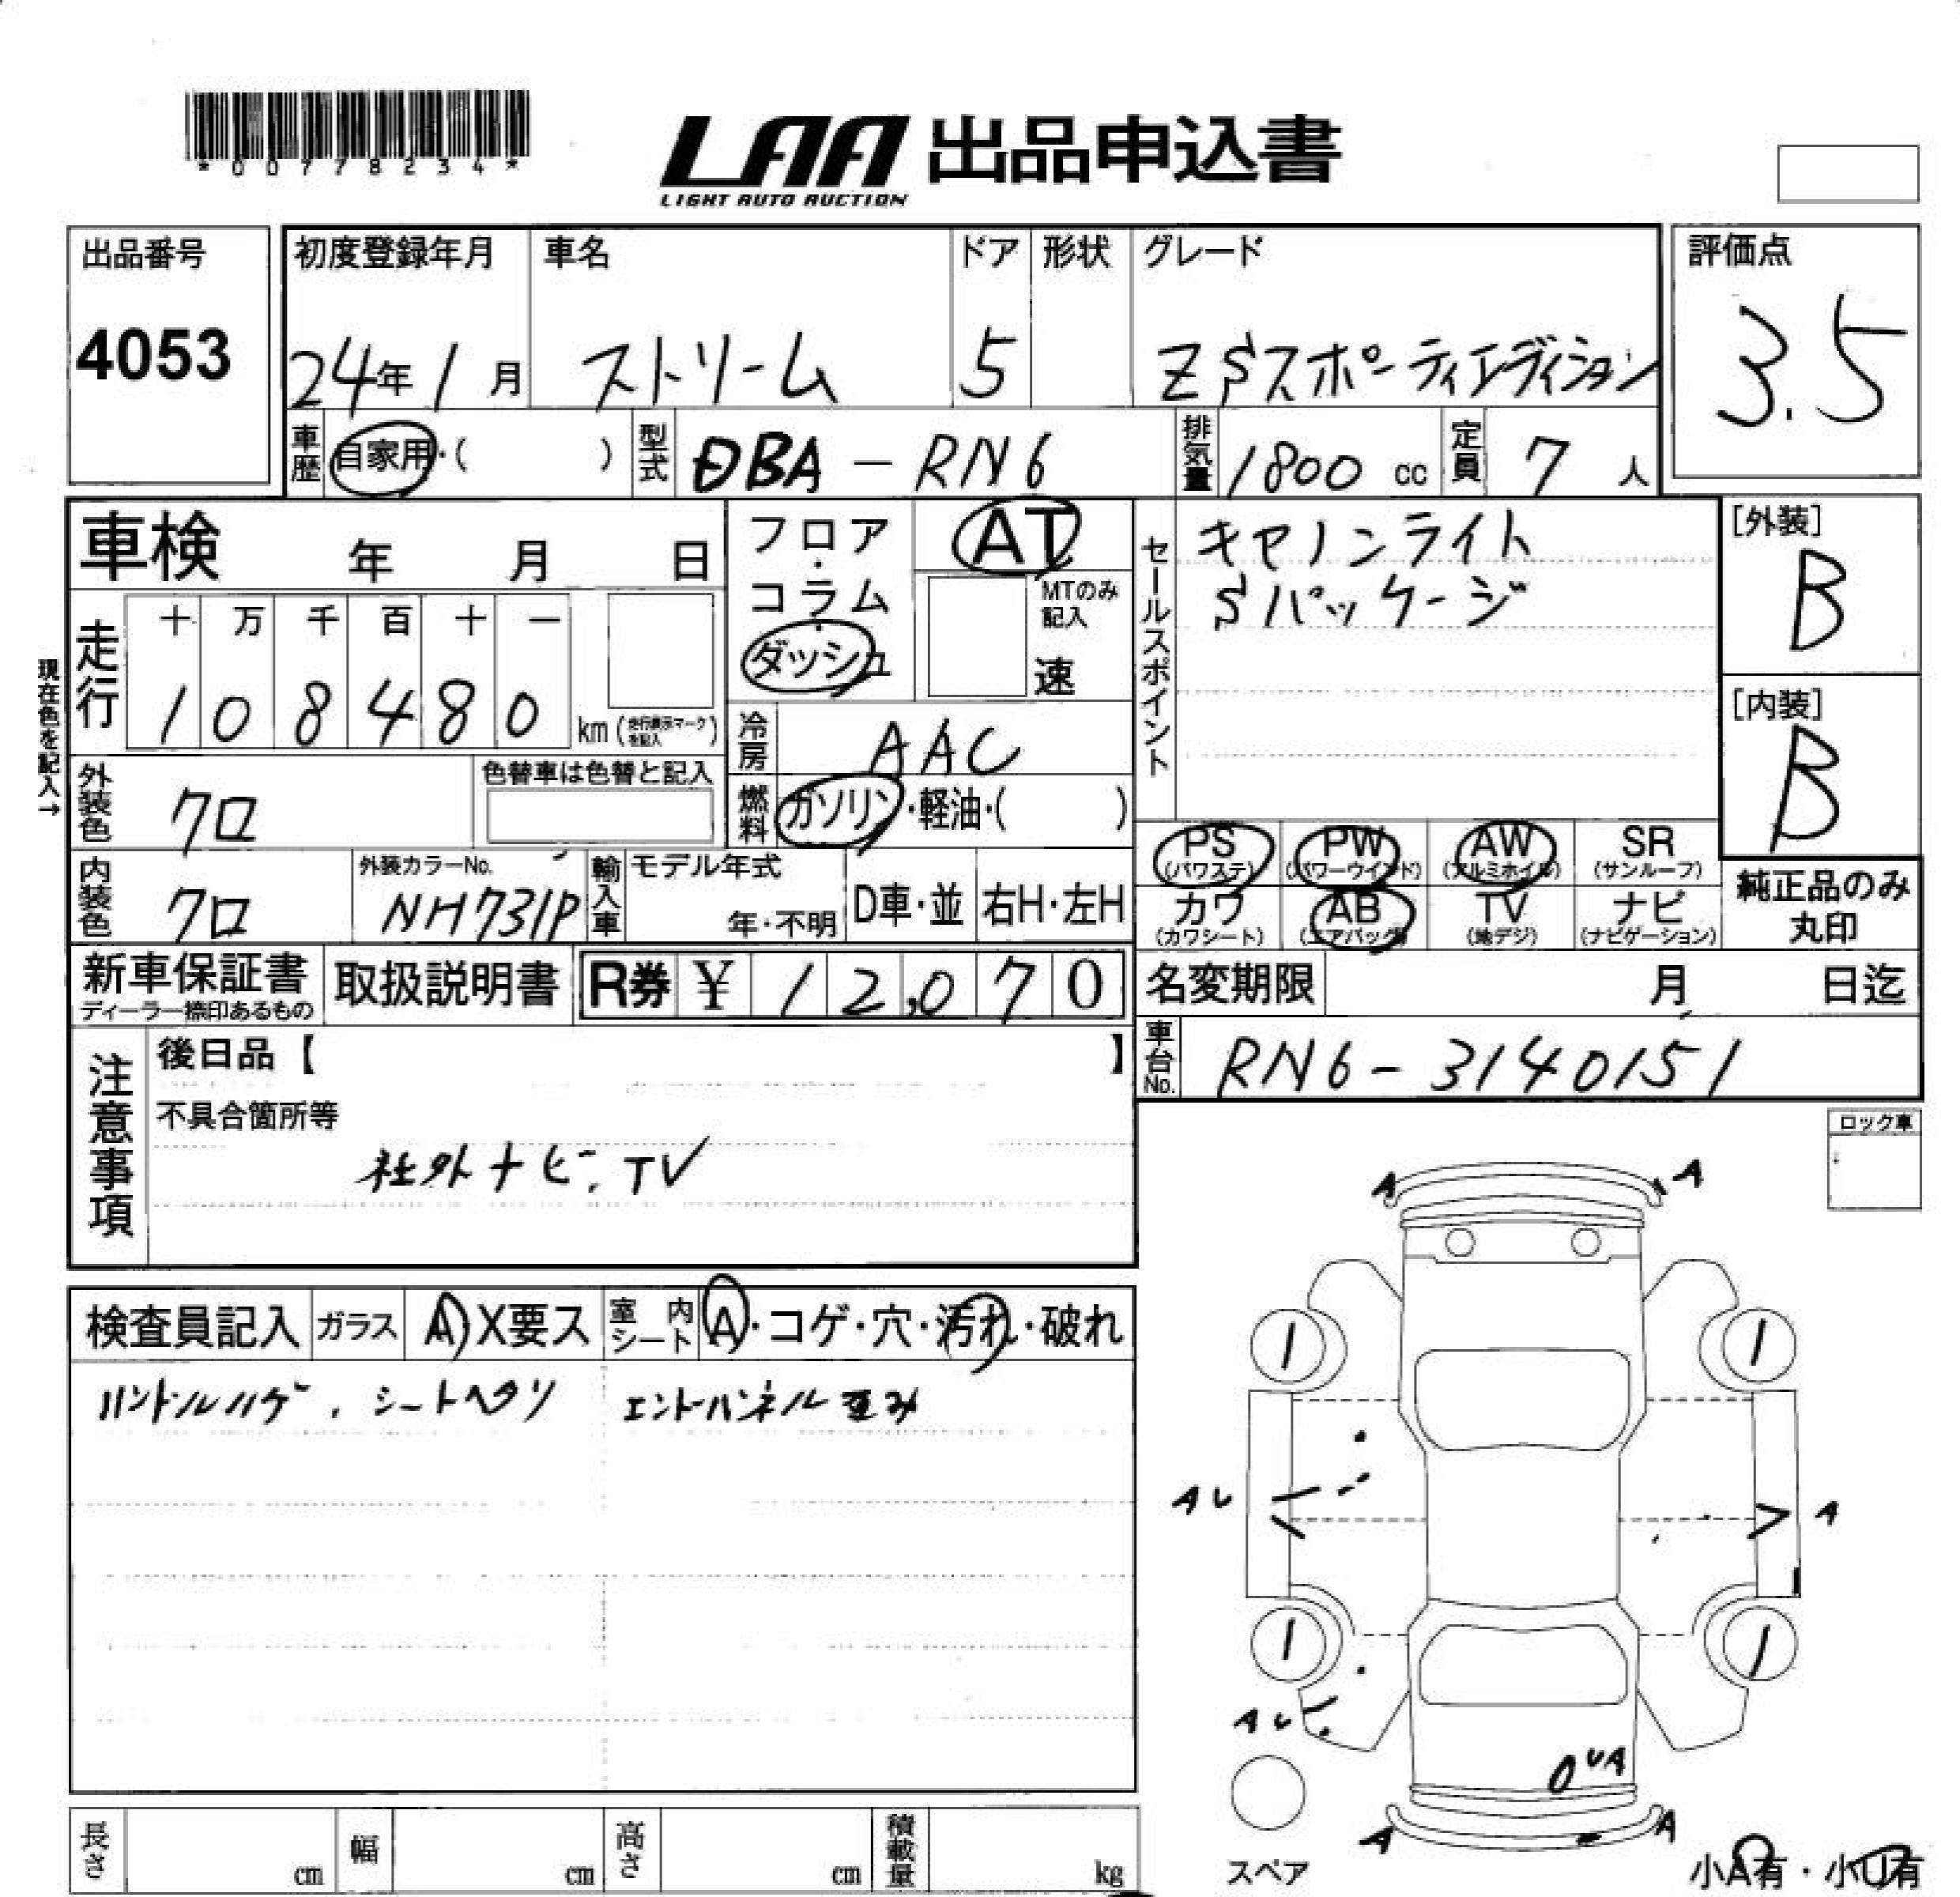 *00778234*
LAA 出品申込書
LIGHT AUTO AUCTION
出品番号 初度登録年月 車名 ドア 形状 グレード 評価点
4053 24年1月 ストリーム 5 ZSスポーティエディション 3.5
車歴 自家用・( ) 型式 DBA-RN6 排気量 1800 cc 定員 7 人
車検 年 月 日
フロア・コラム・ダッシュ AT
MTのみ記入 速
セールスポイント
キセノンライト
Sパッケージ
[外装]
B
[内装]
B
現在色を記入→
走行 十 万 千 百 十 一
1 0 8 4 8 0 km (走行表示マークを記入)
冷房 AAC
外装色 クロ 色替車は色替と記入
燃料 ガソリン・軽油・( )
内装色 クロ 外装カラーNo. NH731P
輸入車 モデル年式 年・不明 D車・並 右H・左H
PS (パワステ) PW (パワーウインド) AW (アルミホイル) SR (サンルーフ)
カワ (カワシート) AB (エアバック) TV (地デジ) ナビ (ナビゲーション)
純正品のみ丸印
新車保証書 ディーラー捺印あるもの 取扱説明書 R券 ¥ 12,070
名変期限 月 日迄
車台No. RN6-3140151
注意事項
後日品【 】
不具合箇所等
社外ナビ.TV
ロック車
検査員記入 ガラス A X要ス 室内シート A・コゲ・穴・汚れ・破れ
ハンドルハゲ、シートヘタリ エンドパネル歪み
A A
1 1
AU A
1 1
AU
UA
A A
スペア
小A有・小U有
長さ cm 幅 cm 高さ cm 積載量 kg